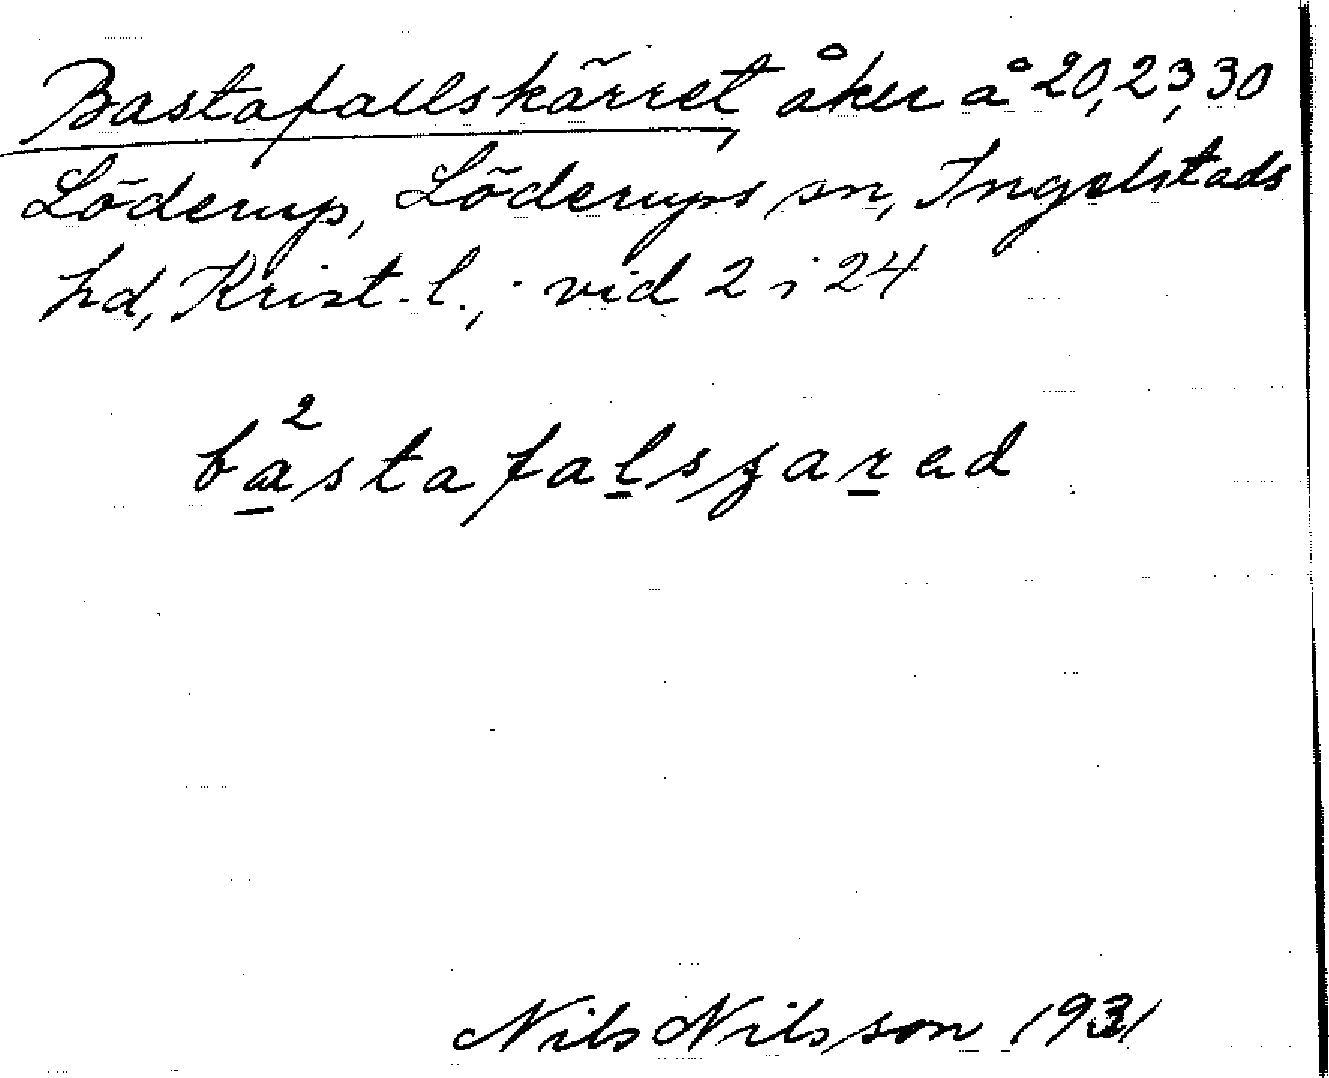 Bastafallskärret, åker å 20, 23, 30
Löderup, Löderups sn, Ingelstads
hd, Krist. l.; vid 2 i 24
2
bastafalszarad
Nils Nilsson 1931